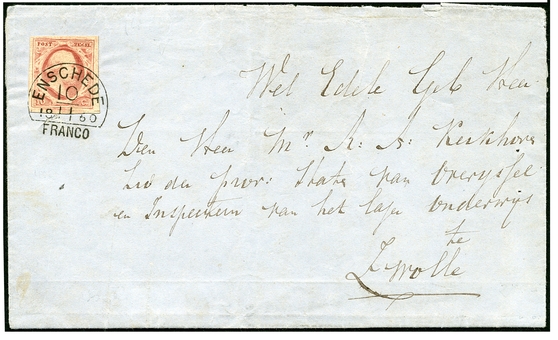 POST ZEGEL
ENSCHEDE
10
11
1860
FRANCO
Wel Edele Geb Heer
Den Heer Mr A: A: Kerkhoven
Lid der prov: Staten van Overyssel
en Inspecteur van het lager onderwijs
te
Zwolle